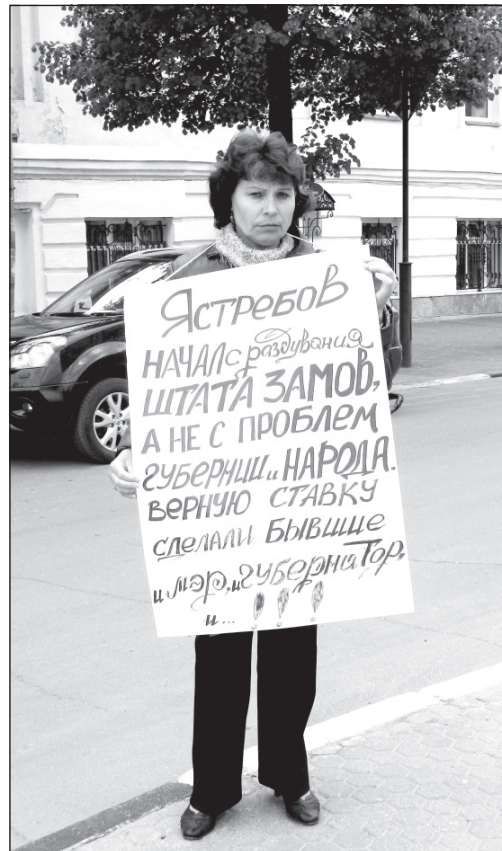 Ястребов
НАЧАЛ с раздувания
ШТАТА ЗАМОВ,
А НЕ С ПРОБЛЕМ
ГУБЕРНИИ и НАРОДА.
ВЕРНУЮ СТАВКУ
СДЕЛАЛИ БЫВШИЕ
и мэр, и губернатор,
и... !!!